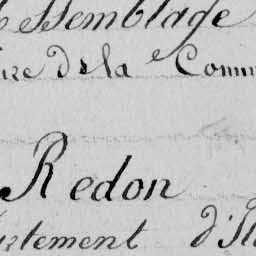 ssemblage
ire de la Comm
Redon
artement d'Ill